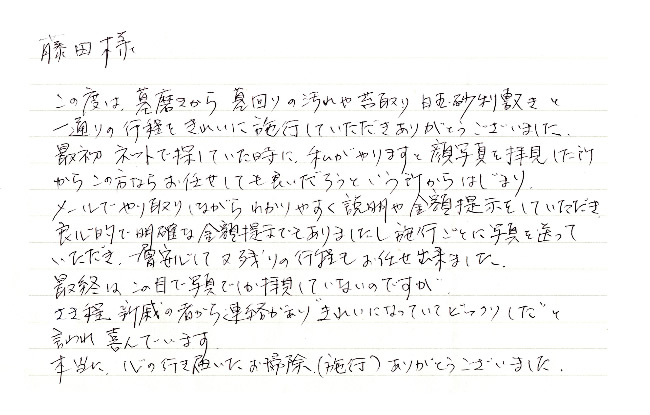 藤田様
この度は、墓磨きから 墓回りの汚れや苔取り 白玉砂利敷きと
一通りの行程をきれいに施行していただきありがとうございました。
最初 ネットで探していた時に、私がやりますと顔写真を拝見した所
からこの方ならお任せしても良いだろうという所からはじまり、
メールでやり取りしながらわかりやすく説明や金額提示をしていただき
良心的で明確な金額提示でもありましたし施行ごとに写真を送って
いただき、一層安心して又残りの行程もお任せ出来ました。
最終はこの目で写真でしか拝見していないのですが
さき程 親戚の者から連絡があり"きれいになっていてビックリした"と
言われ 喜んでいます。
本当に、心の行き届いたお掃除(施行)ありがとうございました。